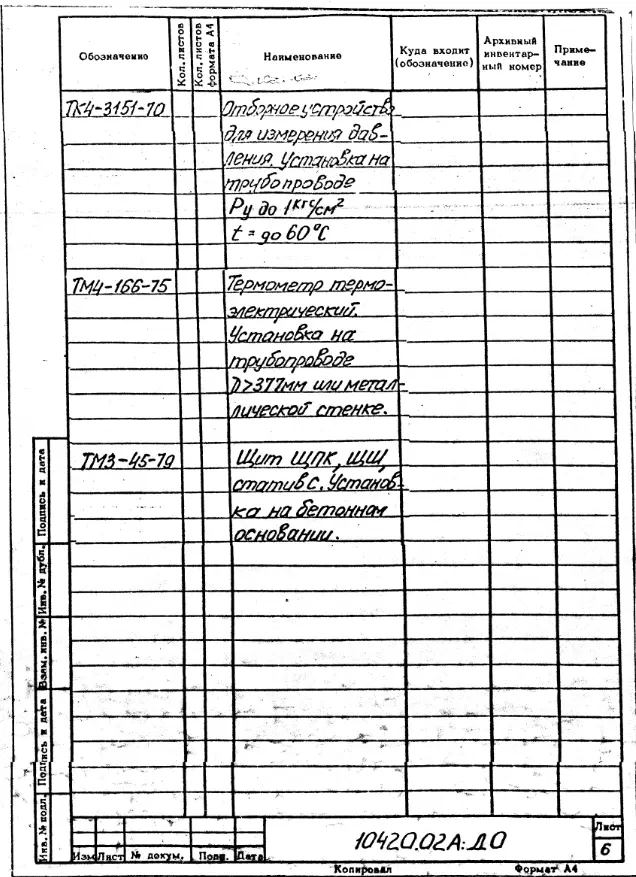 Обозначение
Кол. листов
Кол. листов формата А4
Наименование
Куда входит
(обозначение)
Архивный
инвентар-
ный номер
Приме-
чание
ТК4-3151-70
Отборное устройство
для измерения дав-
ления. Установка на
трубопроводе
Ру до 1 кгс/см²
t = до 60°С
ТМ4-166-75
Термометр термо-
электрический.
Установка на
трубопроводе
D>377мм или метал-
лической стенке.
ТМ3-45-79
Щит ЩПК, ЩШ,
статив С. Установ-
ка на бетонном
основании.
Подпись и дата
Инв. № дубл.
Взам. инв. №
Подпись и дата
Инв. № подл.
Изм
Лист
№ докум.
Подп.
Дата
10420.02А:Д0
Лист
6
Копировал
Формат А4